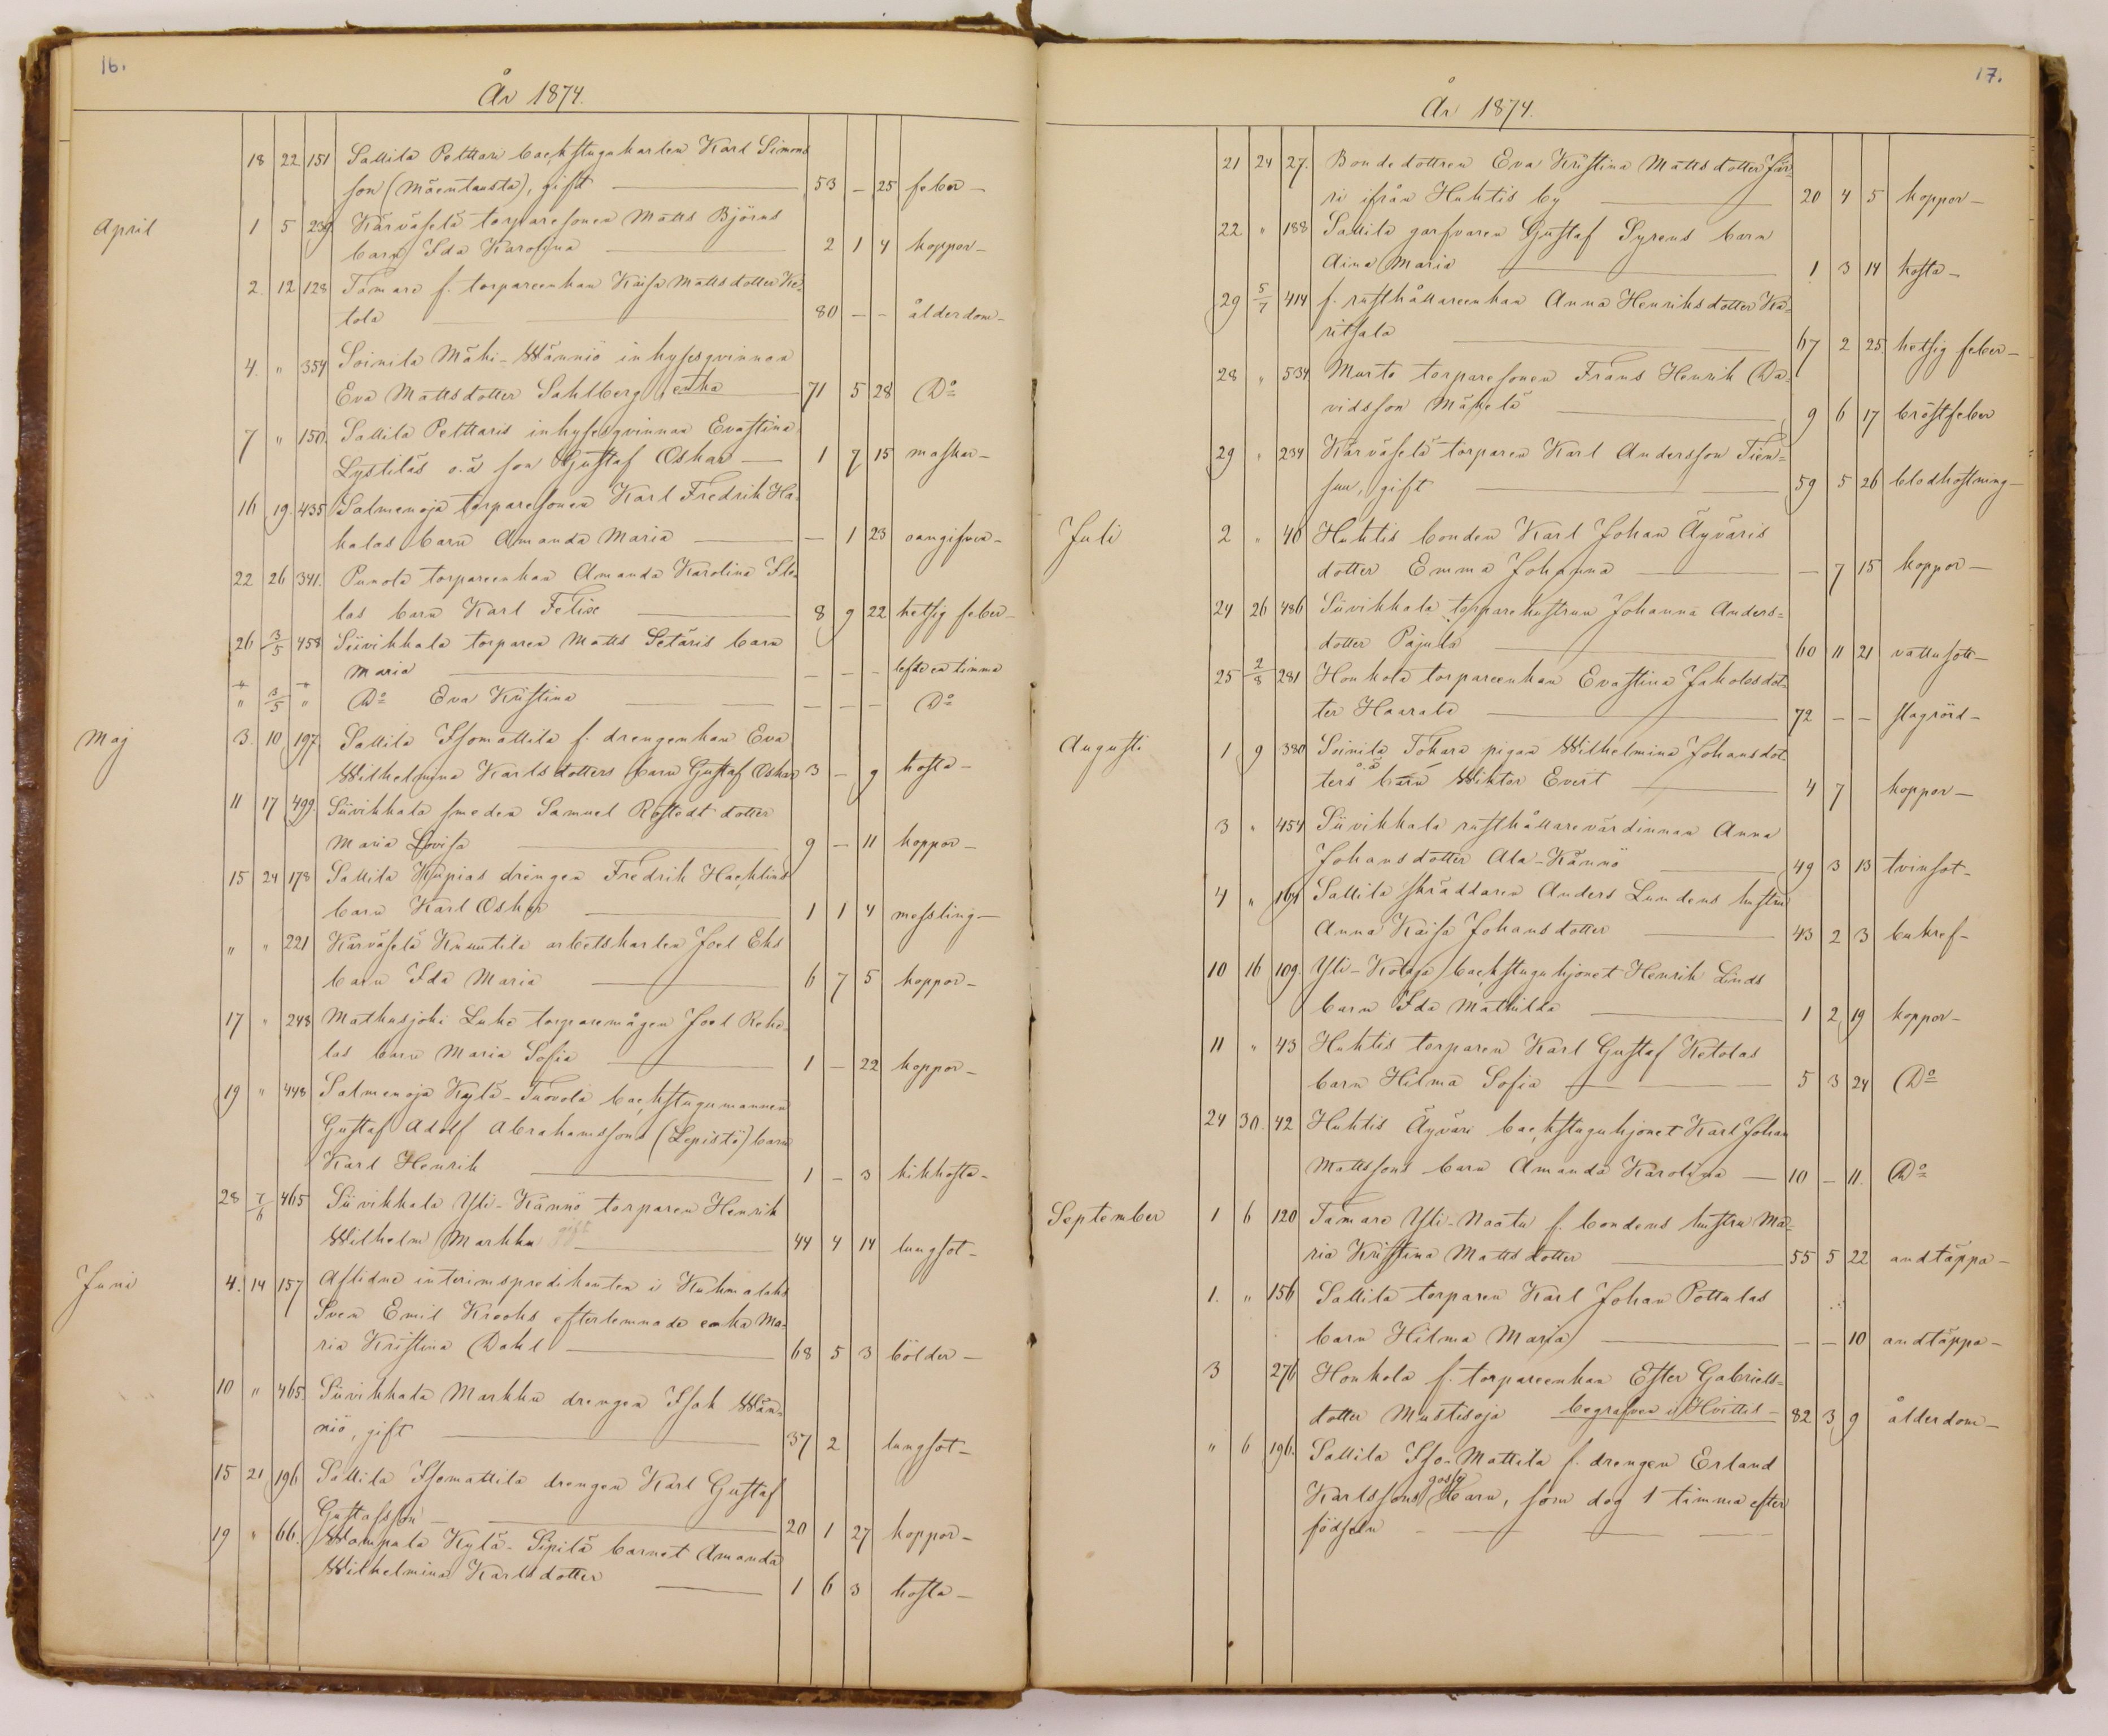 16.
År 1874.
18 22 151 Sallila Pelttari backstugukarlen Karl Simons
son (Mäentausta), gift 53 — 25 feber —
April 1 5 239 Kärväselä torparesonen Matts Björns
barn Ida Karolina 2 1 4 koppor —
2. 12 128 Tamare f. torpareenkan Kaisa Mattsdotter Ke-
tola 80 — — ålderdom —
4. " 354 Soinila Mäki-Männiö inhysesqvinnan
Eva Mattsdotter Sahlberg, enka 71 5 28 Do
7 " 150. Sallila Pelttaris inhysesqvinnan Evastina
Lystiläs o.ä son Gustaf Oskar — 1 7 15 maskar —
16 19. 435 Salmenoja torparesonen Karl Fredrik Ha-
kalas barn Amanda Maria — 1 23 oangifven —
22 26 341. Punola torpareenkan Amanda Karolina Flo-
las barn Karl Felix 8 9 22 hetsig feber —
26 3/5 458 Siivikkala torparen Matts Setäris barn
Maria — — — lefde en timma
+ +
" 3/5 " Do Eva Kristina — — — Do
Maj 3. 10 197. Sallila Isomattila f. drengenkan Eva
Wilhelmina Karlsdotters barn Gustaf Oskar 3 — 9 hosta —
11 17 499. Siivikkala smeden Samuel Rostedt dotter
Maria Lovisa 9 — 11 koppor —
15 24 178 Sallila Krupias drengen Fredrik Hacklins
barn Karl Oskar 1 1 4 messling —
" " 221 Kärväselä Knuutila arbetskarlen Joel Eks
barn Ida Maria 6 7 5 koppor —
17 " 248 Matkusjoki Luhe torparemågen Joel Reko-
las barn Maria Sofia 1 — 22 koppor —
19 " 448 Salmenoja Kylä-Tuovola backstugumannen
Gustaf Adolf Abrahamssons (Lepistö) barn
Karl Henrik 1 — 3 kikhosta —
28 7/6 465 Siivikkala Yli-Kännö torparen Henrik
Wilhelm Markku gift 44 4 14 lungsot —
Juni 4. 14 157 Aflidne interimspredikanten i Kuhmalaks
Sven Emil Krooks efterlemnade enka Ma-
ria Kristina Dahl 68 5 3 bölder —
10 " 465. Siivikkala Markku drengen Isak Män-
niö, gift 37 2 lungsot —
15 21 196 Sallila Isomattila drengen Karl Gustaf
Gustafsson 20 1 27 koppor —
19 " 66. Wampala Kylä-Sipilä barnet Amanda
Wilhelmina Karlsdotter 1 6 3 hosta —
17.
År 1874.
21 24 27. Bondedottren Eva Kristina Mattsdotter Jär-
ri ifrån Huhtis by 20 4 5 koppor —
22 " 188 Sallila garfvaren Gustaf Syrens barn
Aina Maria 1 3 14 hosta —
29 5/7 414 f. rusthållareenkan Anna Henriksdotter Ka-
ritsala 67 2 25 hetsig feber —
28 " 534 Murto torparesonen Frans Henrik Da-
vidsson Mäkelä 9 6 17 bröstfeber
29 " 234 Kärväselä torparen Karl Andersson Tien-
suu, gift 59 5 26 blodhostning —
Juli 2 " 40 Huhtis bonden Karl Johan Äyväris
dotter Emma Johanna — 7 15 koppor —
24 26 486 Siivikkala torparehustrun Johanna Anders-
dotter Pajula 60 11 21 vattusott —
25 2/8 281 Honkola torpareenkan Evastina Jakobsdot-
ter Haarala 72 — — slagrörd —
Augusti 1 9 380 Soinila Tokara pigan Wilhelmina Johansdot-
o.ä
ters barn Wiktor Evert 4 7 koppor —
3 " 454 Siivikkala rusthållarevärdinnan Anna
Johansdotter Ala-Kännö 49 3 13 tvinsot —
4 " 164 Sallila skräddaren Anders Lundens hustru
Anna Kaisa Johansdotter 43 2 3 bukref —
10 16 109. Yli-Kolaja backstuguhjonet Henrik Linds
barn Ida Mathilda 1 2 19 koppor —
11 " 43 Huhtis torparen Karl Gustaf Ketolas
barn Hilma Sofia 5 3 24 Do
24 30. 42 Huhtis Äyväri backstuguhjonet Karl Johan
Mattssons barn Amanda Karolina — 10 — 11. Do
September 1 6 120 Tamare Yli-Naatu f. bondens hustru Ma-
ria Kristina Mattsdotter 55 5 22 andtäppa —
1. " 156 Sallila torparen Karl Johan Pottulas
barn Hilma Maria — — 10 andtäppa —
3 276 Honkola f. torpareenkan Ester Gabriels-
dotter Mustisoja begrafven i Hvittis — 82 3 9 ålderdom —
" 6 196. Sallila Iso-Mattila f. drengen Erland
gosse
Karlssons barn, som dog 1 timma efter
födseln